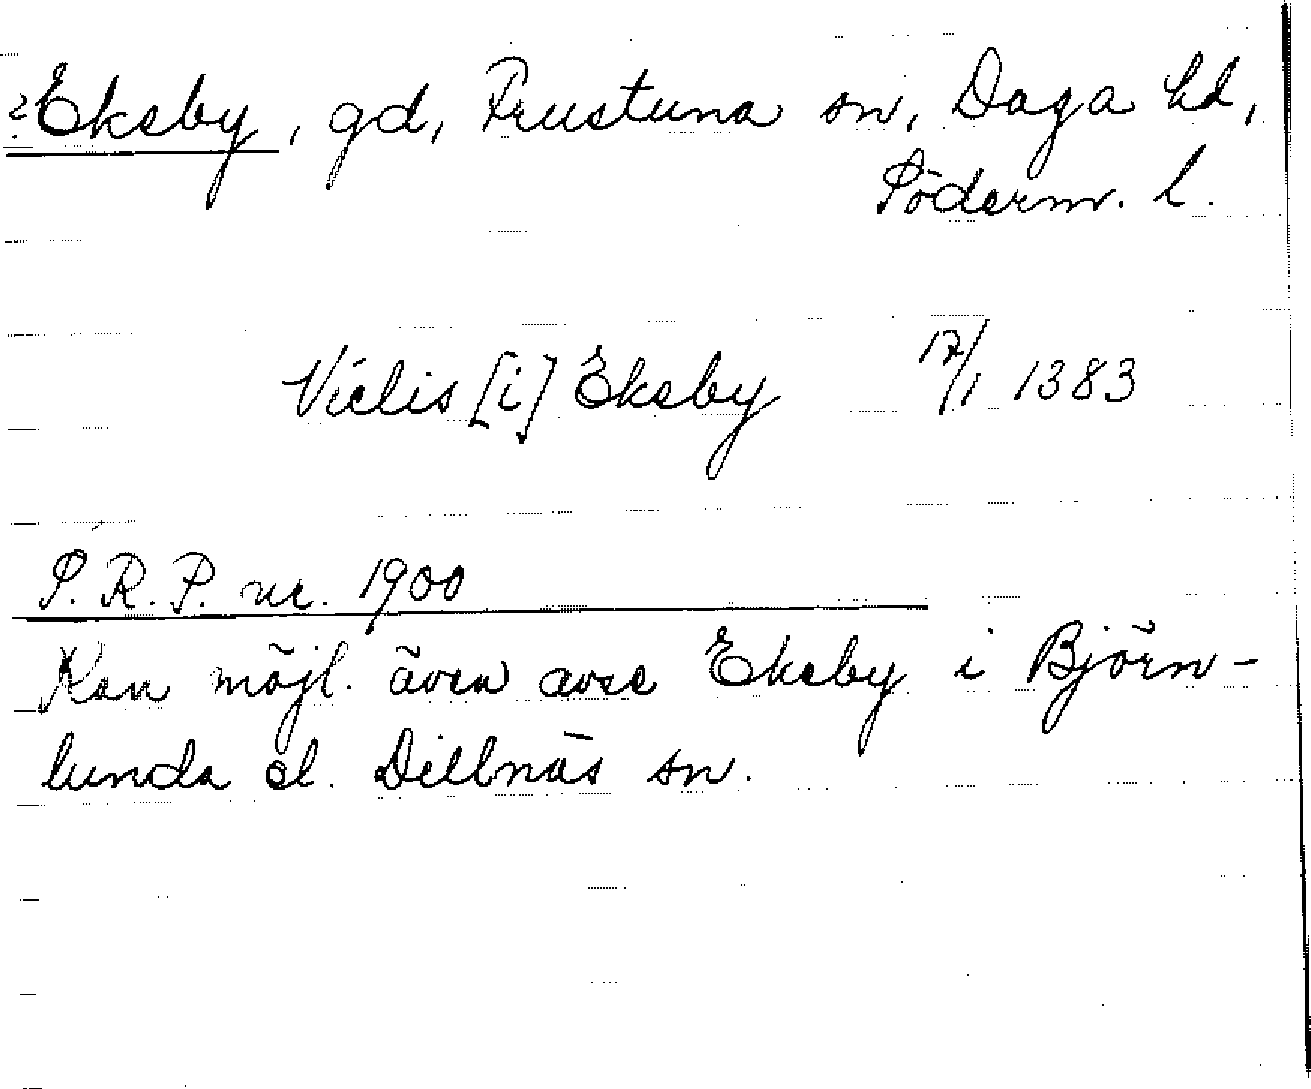 ?Eksby, gd, Frustuna sn, Daga hd,
Söderm. l.
Niclis [i] Eksby 17/1 1383
S.R.P. nr. 1900
Kan möjl. även avse Eksby i Björn-
lunda el. Dillnäs sn.